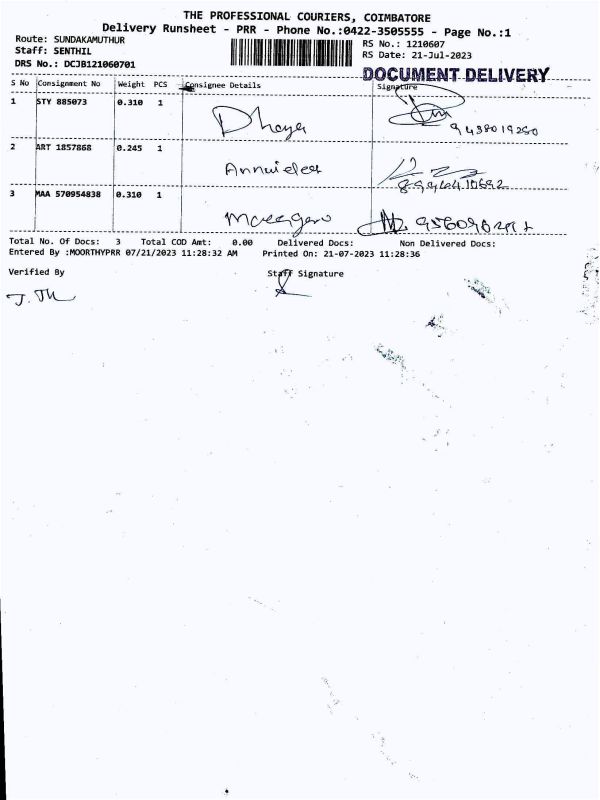 THE PROFESSIONAL COURIERS, COIMBATORE
Delivery Runsheet - PRR - Phone No.:0422-3505555 - Page No.:1
Route: SUNDAKAMUTHUR
RS No.: 1210607
Staff: SENTHIL
RS Date: 21-Jul-2023
DRS No.: DCJB121060701
DOCUMENT DELIVERY
S No Consignment No Weight PCS Consignee Details Signature
1 STY 885073 0.310 1 Dhaya
2 ART 1857868 0.245 1
3 MAA 570954838 0.310 1
Total No. Of Docs: 3 Total COD Amt: 0.00 Delivered Docs: Non Delivered Docs:
Entered By :MOORTHYPRR 07/21/2023 11:28:32 AM Printed On: 21-07-2023 11:28:36
Verified By Staff Signature